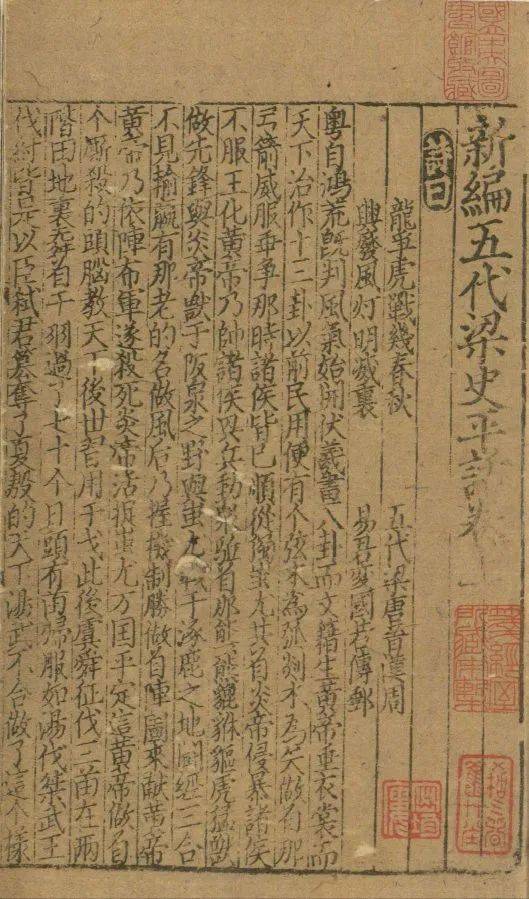 新編五代梁史平話卷上
詩曰
龍爭虎戰幾春秋 五代梁唐晉漢周
興廢風灯明滅裏 易君變國若傳郵
粵自鴻荒既判風氣始開伏羲畫八卦而文籍生黃帝垂衣裳而
天下治作十三卦以前民用便有个弦木為弧剡木為矢做着那
弓箭威服乖爭那時諸侯皆已順從獨蚩尤共着炎帝侵暴諸侯
不服王化黃帝乃帥諸侯興兵動眾驅着那熊羆貔貅貙虎猛獸
做先鋒與炎帝戰于阪泉之野與蚩尤戰于涿鹿之地鬬經三合
不見輸贏有那老的名做風后乃握機制勝做着陣圖來献黃帝
黃帝乃依陣布軍遂殺死炎帝活捉蚩尤万国平定這黃帝做着
个廝殺的頭腦教天下後世習用干戈此後虞舜征伐三苗在兩
階田地裏舞着干羽過了七十个日頭有苗歸服如湯伐桀武王
伐紂皆是以臣弒君篡奪了夏殷的天下湯武不合做了這个樣